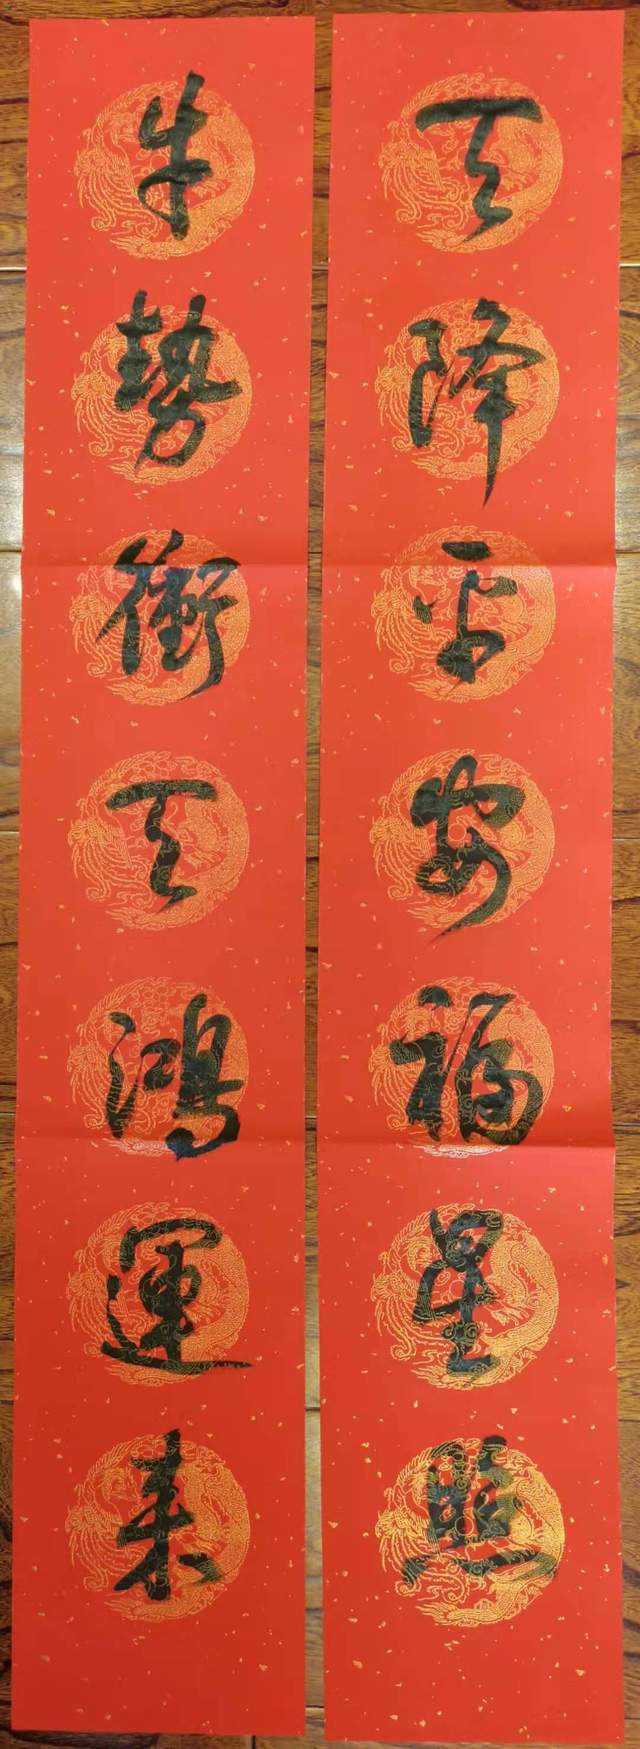 天降平安福星照
牛勢衝天鴻運來